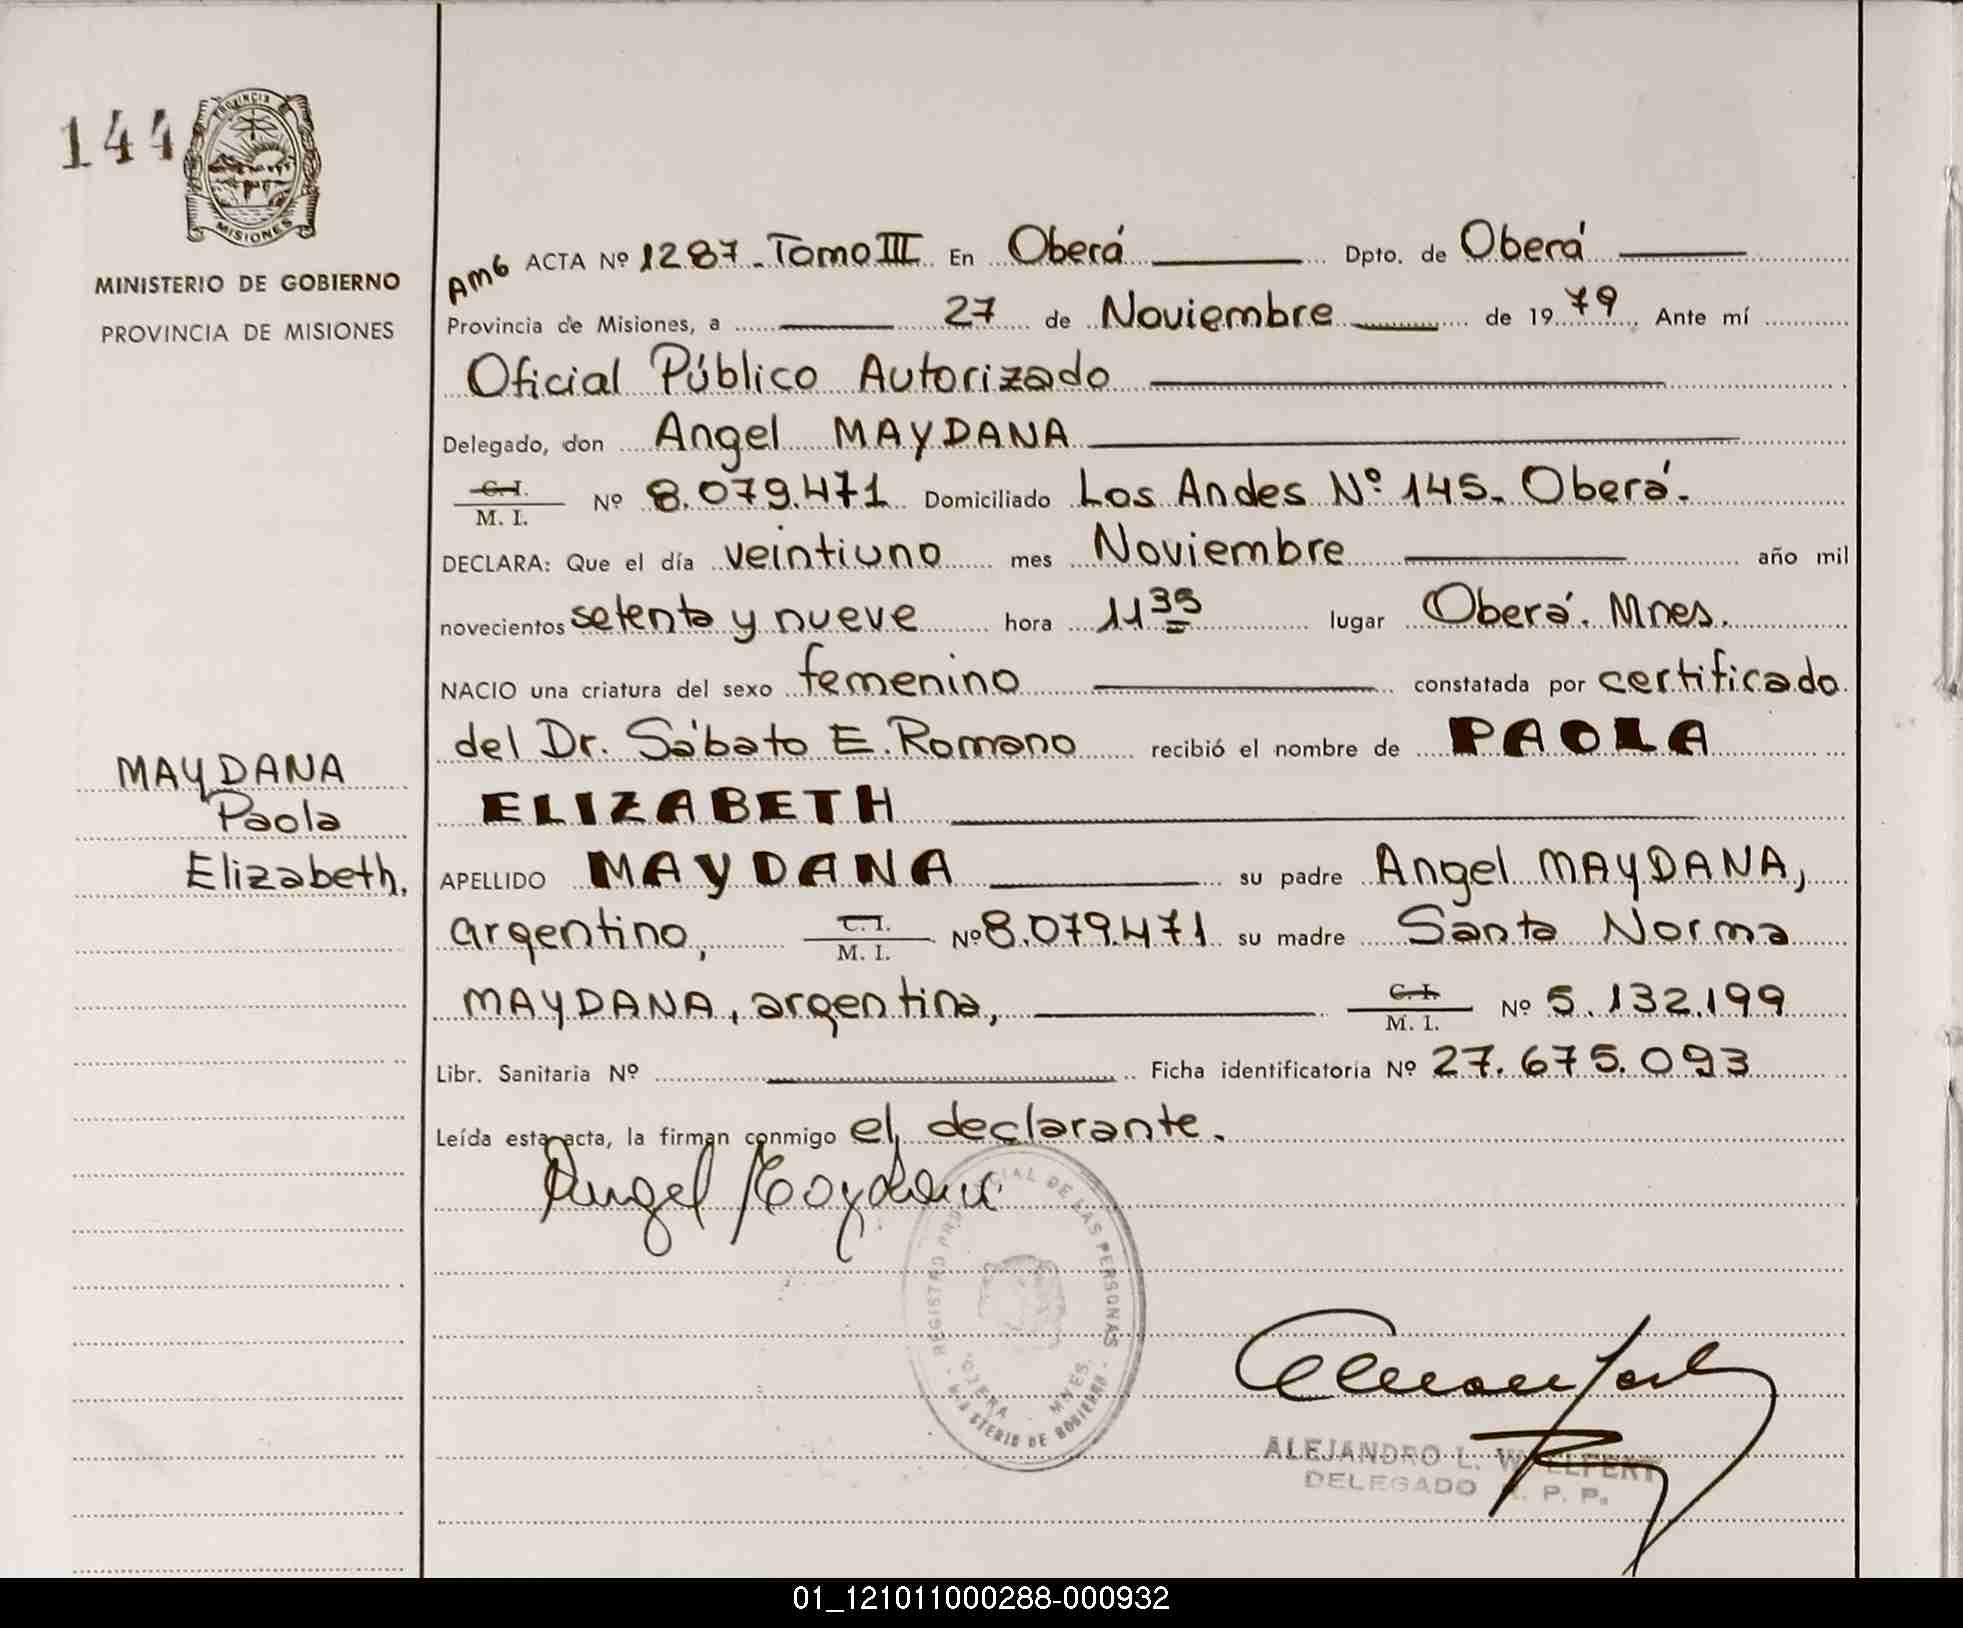 144
PROVINCIA
MISIONES
MINISTERIO DE GOBIERNO
PROVINCIA DE MISIONES
MAYDANA
Paola
Elizabeth.
Am6 ACTA Nº 1287 - Tomo III En Oberá Dpto. de Oberá
Provincia de Misiones, a 27 de Noviembre de 1979 Ante mí
Oficial Público Autorizado
Delegado, don Angel MAYDANA
C. I. / M. I. Nº 8.079.471 Domiciliado Los Andes Nº 145- Oberá-
DECLARA: Que el día veintiuno mes Noviembre año mil
novecientos setenta y nueve hora 11 35 lugar Oberá. Mnes.
NACIO una criatura del sexo femenino constatada por certificado
del Dr. Sábato E. Romano recibió el nombre de PAOLA
ELIZABETH
APELLIDO MAYDANA su padre Angel MAYDANA,
argentino, C. I. / M. I. Nº 8.079.471 su madre Santa Norma
MAYDANA, argentina, C. I. / M. I. Nº 5.132.199
Libr. Sanitaria Nº Ficha identificatoria Nº 27.675.093
Leída esta acta, la firman conmigo el declarante.
Angel Maydana
REGISTRO PROVINCIAL DE LAS PERSONAS
MNES.
MINISTERIO DE GOBIERNO
ALEJANDRO L.
DELEGADO R. P. P.
01_121011000288-000932